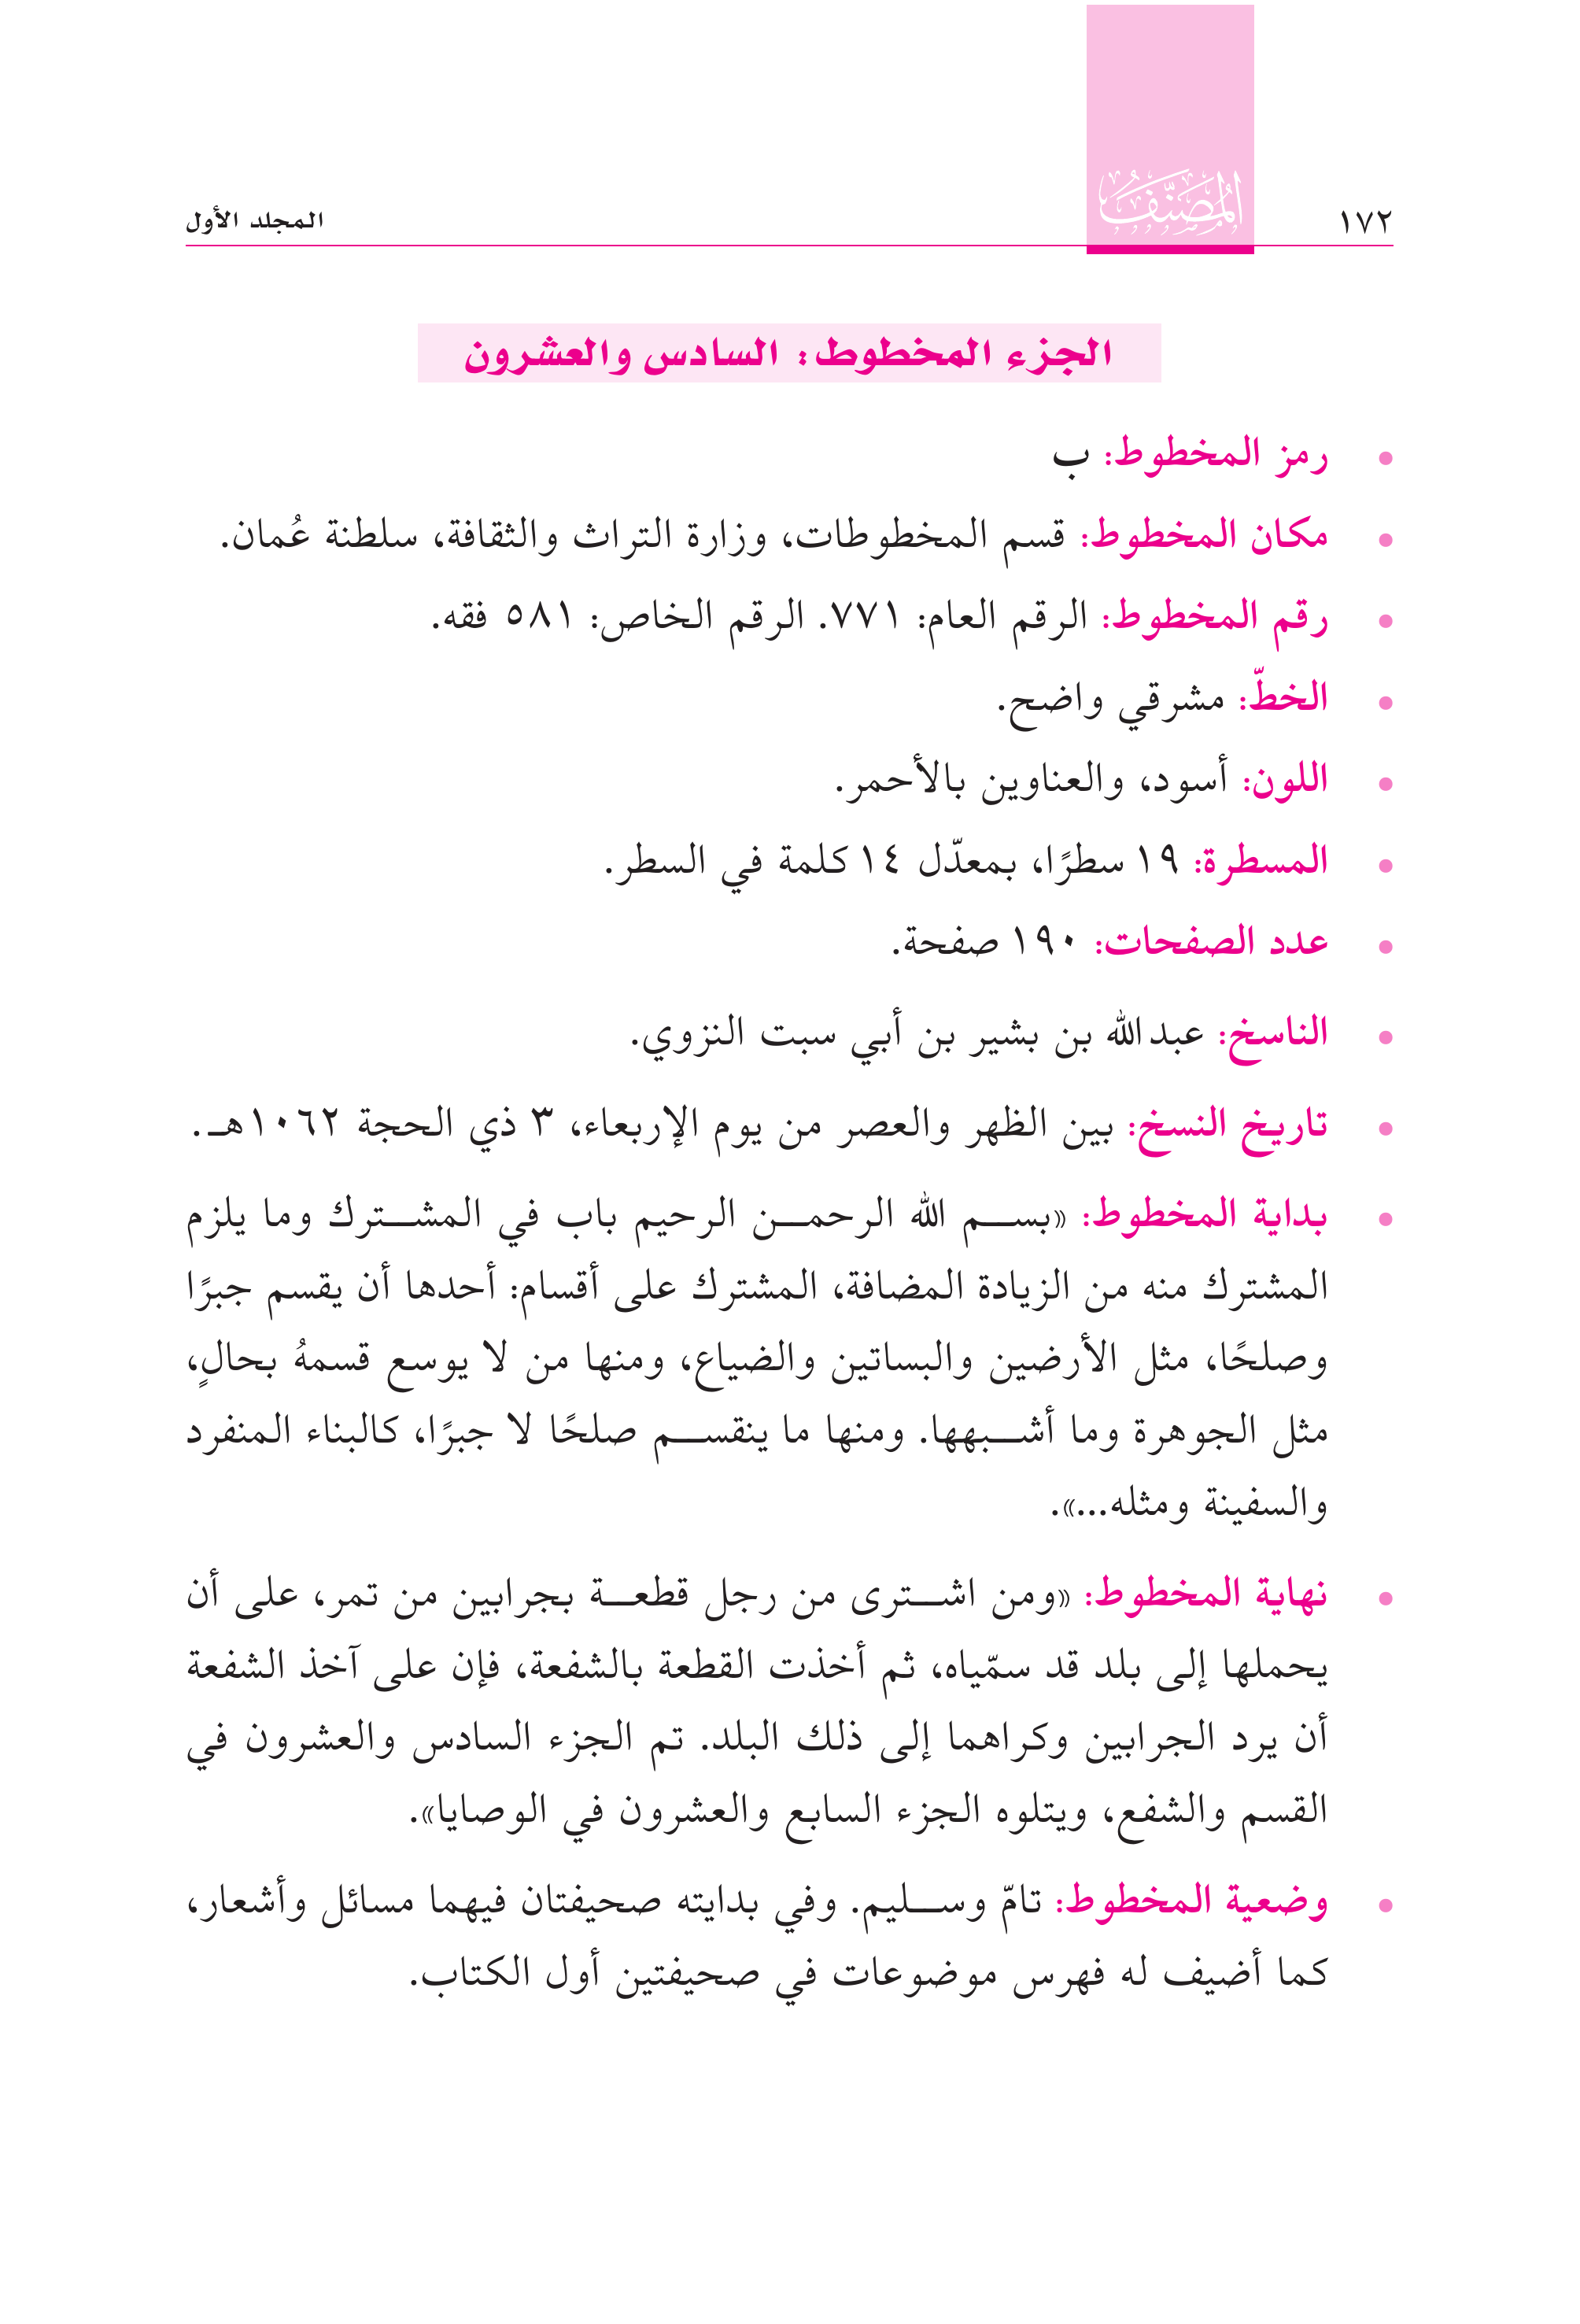 ١٧٢
المصنَّف
المجلد الأول
الجزء المخطوط: السادس والعشرون
• رمز المخطوط: ب
• مكان المخطوط: قسم المخطوطات، وزارة التراث والثقافة، سلطنة عُمان.
• رقم المخطوط: الرقم العام: ٧٧١. الرقم الخاص: ٥٨١ فقه.
• الخطّ: مشرقي واضح.
• اللون: أسود، والعناوين بالأحمر.
• المسطرة: ١٩ سطرًا، بمعدّل ١٤ كلمة في السطر.
• عدد الصفحات: ١٩٠ صفحة.
• الناسخ: عبدالله بن بشير بن أبي سبت النزوي.
• تاريخ النسخ: بين الظهر والعصر من يوم الإربعاء، ٣ ذي الحجة ١٠٦٢هـ.
• بداية المخطوط: «بسم الله الرحمن الرحيم باب في المشترك وما يلزم
المشترك منه من الزيادة المضافة، المشترك على أقسام: أحدها أن يقسم جبرًا
وصلحًا، مثل الأرضين والبساتين والضياع، ومنها من لا يوسع قسمهُ بحالٍ،
مثل الجوهرة وما أشبهها. ومنها ما ينقسم صلحًا لا جبرًا، كالبناء المنفرد
والسفينة ومثله...».
• نهاية المخطوط: «ومن اشترى من رجل قطعة بجرابين من تمر، على أن
يحملها إلى بلد قد سمّياه، ثم أخذت القطعة بالشفعة، فإن على آخذ الشفعة
أن يرد الجرابين وكراهما إلى ذلك البلد. تم الجزء السادس والعشرون في
القسم والشفع، ويتلوه الجزء السابع والعشرون في الوصايا».
• وضعية المخطوط: تامّ وسليم. وفي بدايته صحيفتان فيهما مسائل وأشعار،
كما أضيف له فهرس موضوعات في صحيفتين أول الكتاب.